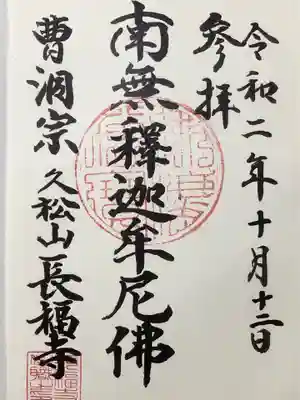 令和二年十月十二日
参拝
南無釋迦牟尼佛
曹洞宗 久松山 長福寺